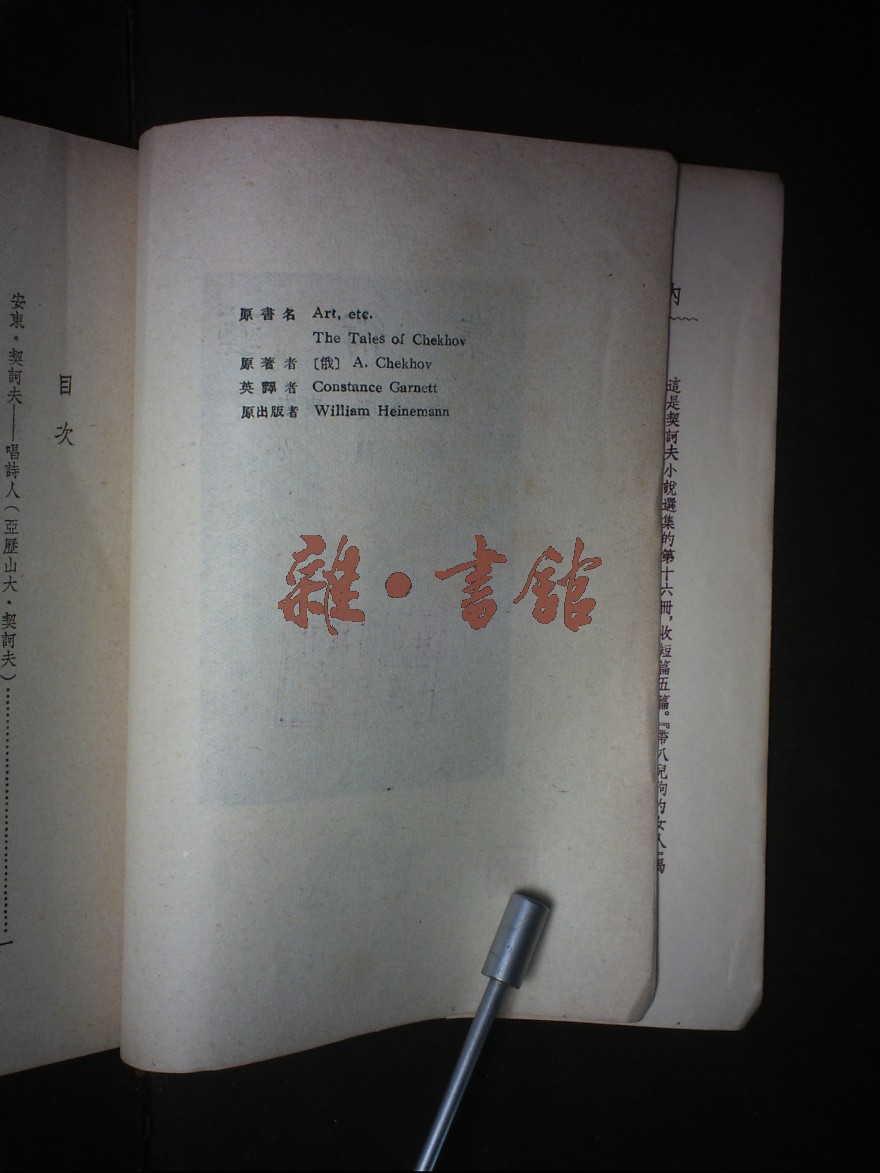 原書名 Art, etc.
The Tales of Chekhov
原著者 〔俄〕 A. Chekhov
英譯者 Constance Garnett
原出版者 William Heinemann
雜·書館
目次
安東·契訶夫——唱詩人(亞歷山大·契訶夫)
內
這是契訶夫小說選集的第十六冊,收短篇五篇。『帶八兒狗的女人』